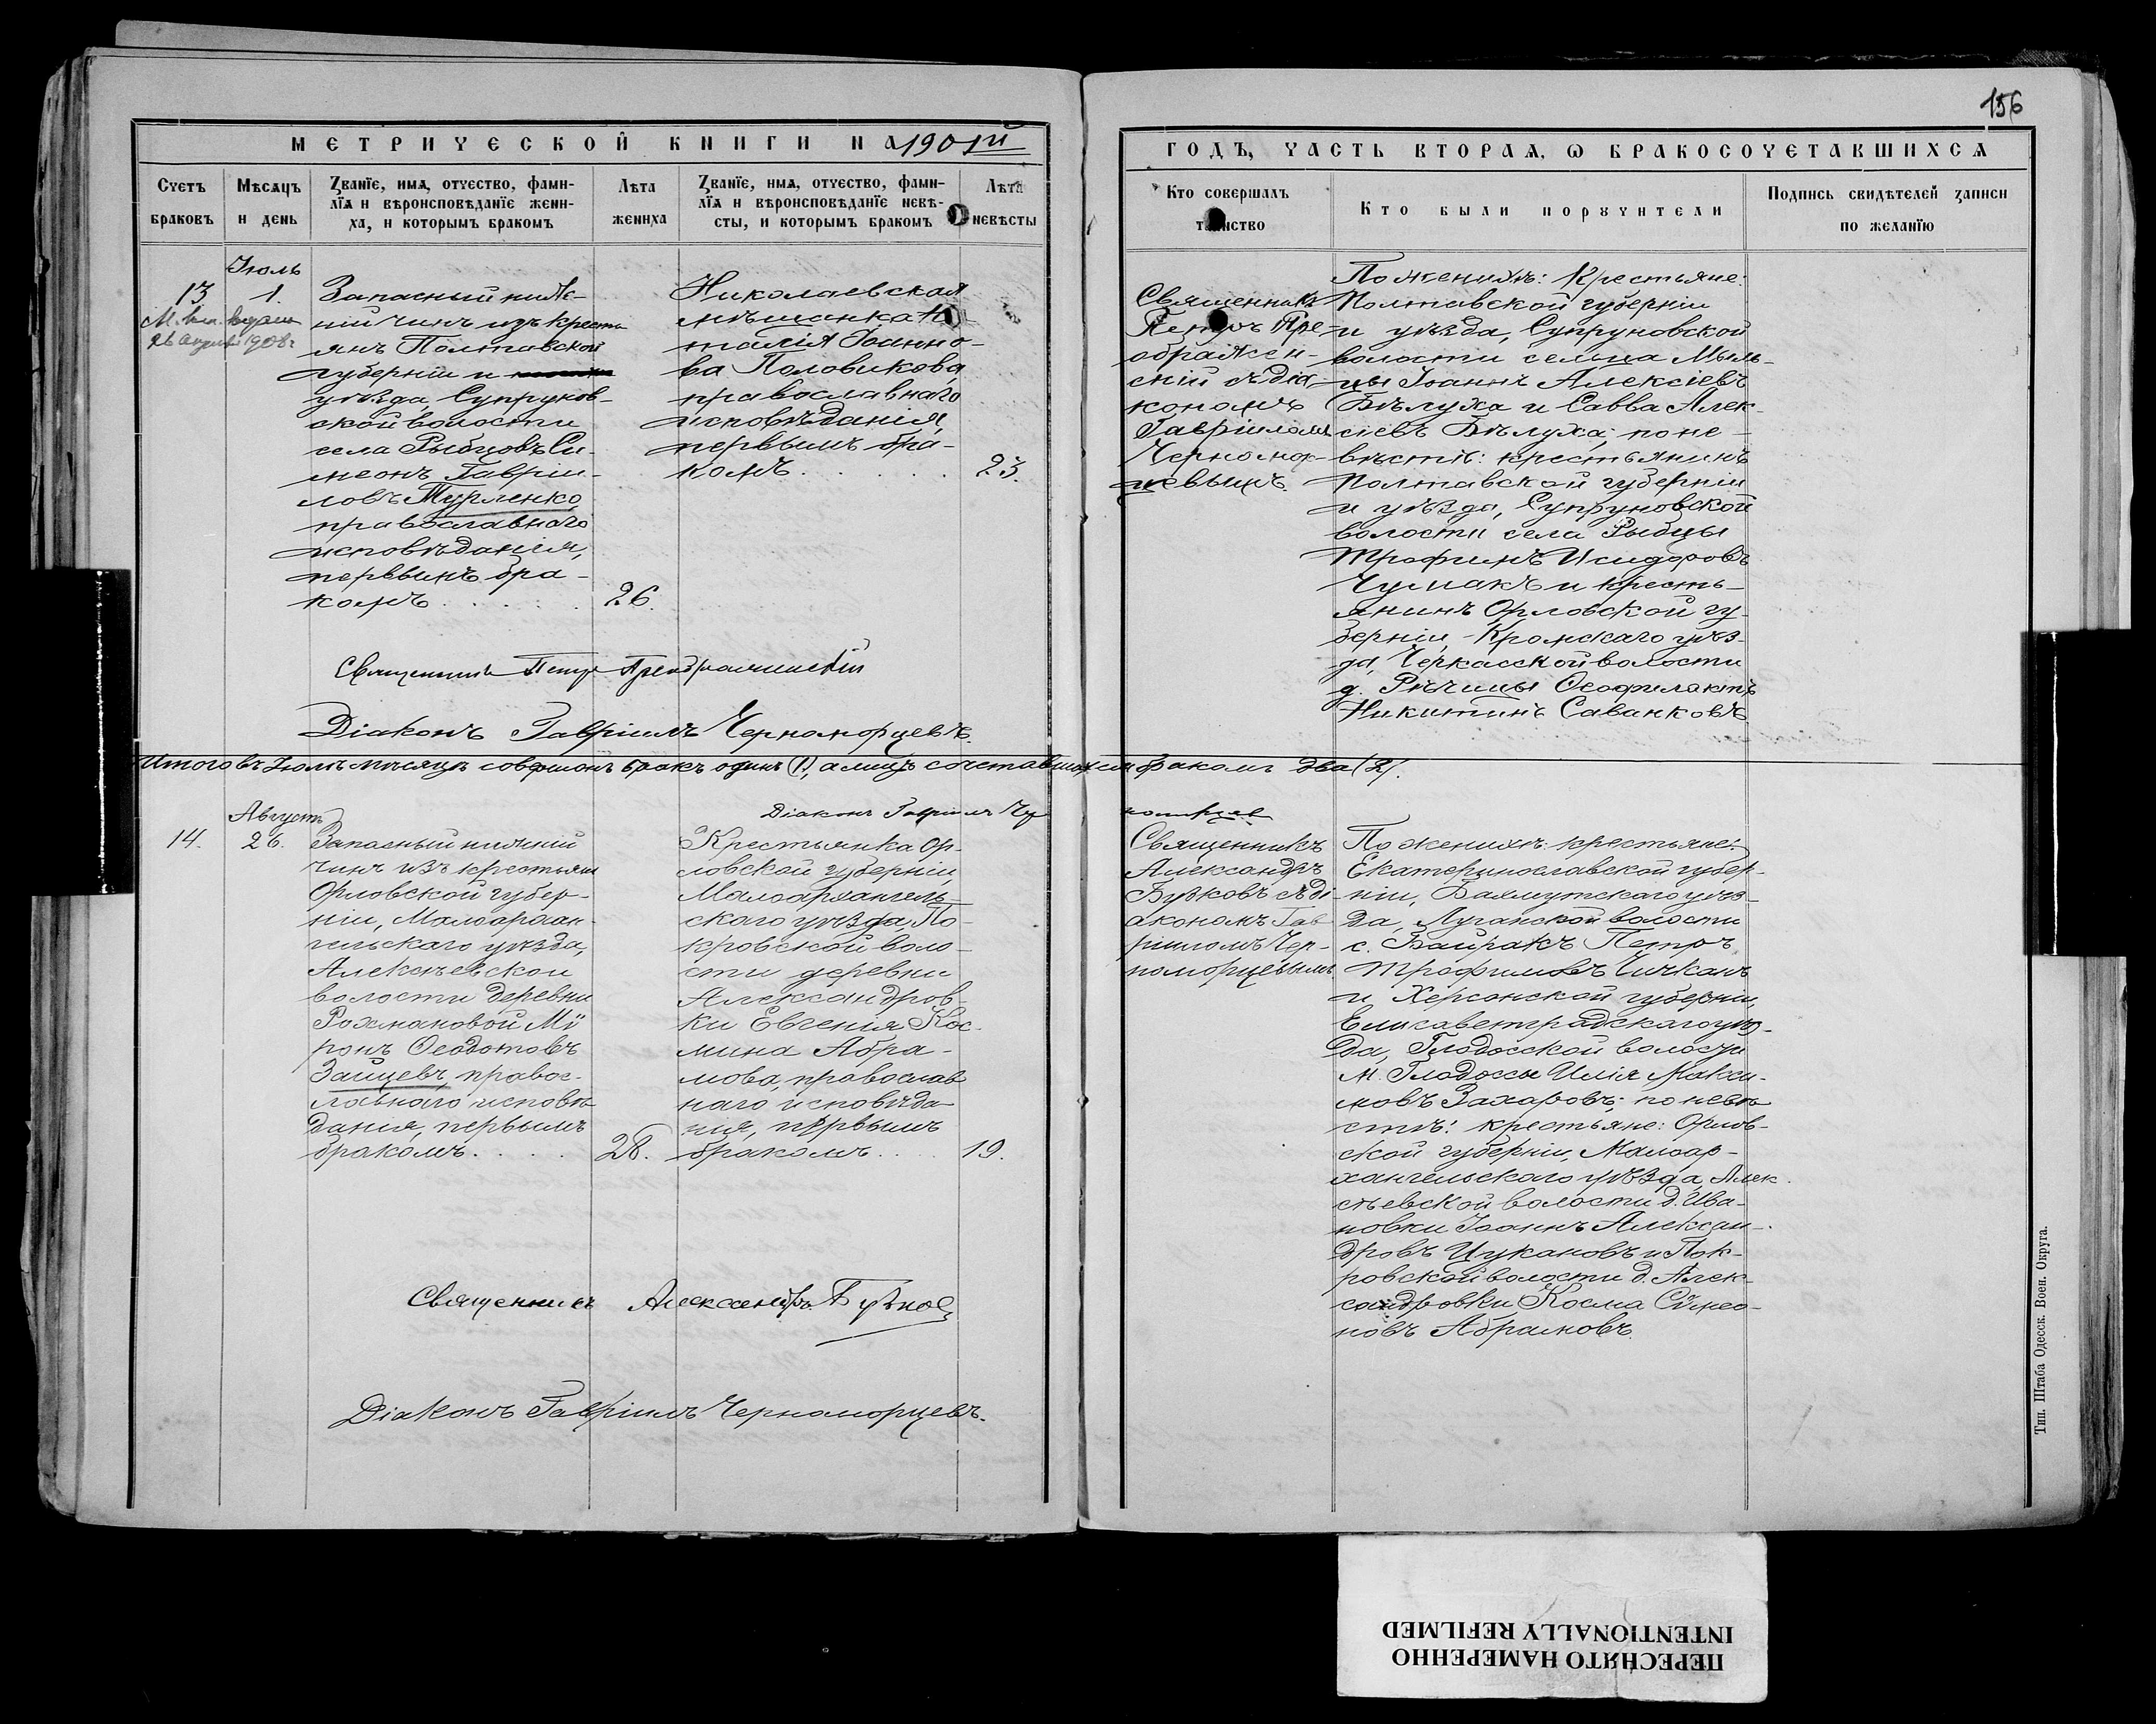 156
МЕТРИЧЕСКОЙ КНИГИ НА 1901й
ГОДЪ, ЧАСТЬ ВТОРАЯ, Ѡ БРАКОСОЧЕТАВШИХСЯ
Счетъ браковъ
Мѣсяцъ и день
Званїе, имя, отчество, фами-
лїя и вѣроисповѣданїе жени-
ха, и которымъ бракомъ
Лѣта жениха
Званїе, имя, отчество, фами-
лїя и вѣроисповѣданїе невѣ-
сты, и которымъ бракомъ
Лѣта невѣсты
Кто совершалъ таинство
Кто были поручители
Подпись свидѣтелей записи по желанїю
Іюль
13
1.
26 1908г
Запасный ниж-
ній чинъ изъ кресть
янъ Полтавской
губерніи и
уѣзда Супрунов-
ской волости
села Рыбцовъ Си-
меонъ Гавріи-
ловъ Турленко
православнаго
исповѣданія,
первымъ бра-
комъ . . . . . .
26.
Николаевская
мѣщанка На
талія Іоанно-
ва Половикова,
православнаго
исповѣданія,
первымъ бра-
комъ . . . . . .
23.
Священникъ
Петръ Пре-
ображен-
скій съ діа-
кономъ
Гавріиломъ
Черномор-
цевымъ.
По женихѣ: Крестьяне:
Полтавской губерніи
и уѣзда, Супруновской
волости сельца Мыль-
цы Іоаннъ Алексіевъ
Бѣлуха и Савва Алек-
сіевъ Бѣлуха; по не-
вѣстѣ: крестьянинъ
Полтавской губерніи
и уѣзда, Супруновской
волости села Рыбцы
Трофимъ Исидоровъ
Чумакъ и кресть-
янинъ Орловской гу-
берніи, Кромскаго уѣз-
да, Черкасской волости
д. Рѣчицы Ѳеофилактъ
Никитинъ Саванковъ
Священникъ Петръ Преображенскій
Діаконъ Гавріилъ Черноморцевъ.
Итого въ Іюлѣ мѣсяцѣ совершенъ бракъ одинъ (1), а лицъ сочетавшихся бракомъ два (2).
Діаконъ Гавріилъ Чер
номорцев
Августъ
14.
26.
Запасный нижній
чинъ изъ крестьянъ
Орловской губер-
ніи, Малоархан-
гельскаго уѣзда,
Алексѣевской
волости деревни
Рохмановой Мѵ
ронъ Ѳеодотовъ
Зайцевъ, правос-
лавнаго исповѣ
данія, первымъ
бракомъ . . . .
28.
Крестьянка Ор-
ловской губерніи,
Малоархангель-
скаго уѣзда, По-
кровской воло-
сти деревни
Александров-
ки Евгенія Кос-
мина Абра-
мова, православ
наго исповѣда
нія, первымъ
бракомъ . . . .
19.
Священникъ
Александръ
Буковъ съ ді-
акономъ Гав
ріиломъ Чер-
номорцевымъ
По женихѣ: крестьяне:
Екатеринославской губер-
ніи, Бахмутскаго уѣз-
да, Луганской волости
с. Байракъ Петръ
Трофимовъ Чичканъ
и Херсонской губерніи,
Елисаветградскаго уѣз-
да, Глодосской волости
м. Глодоссы Илія Макси-
мовъ Захаровъ; по невѣ
стѣ: крестьяне: Орлов-
ской губерніи, Малоар-
хангельскаго уѣзда, Алек-
сѣевской волости д. Ива-
новки Іоаннъ Алексан-
дровъ Цукановъ и Пок-
ровской волости д. Алек-
сандровки Косма Симео-
новъ Абрамовъ.
Священникъ Александръ Буковъ
Діаконъ Гавріилъ Черноморцевъ.
Тип. Штаба Одесск. Воен. Округа.
ПЕРЕСНЯТО НАМЕРЕННО
INTENTIONALLY REFILMED